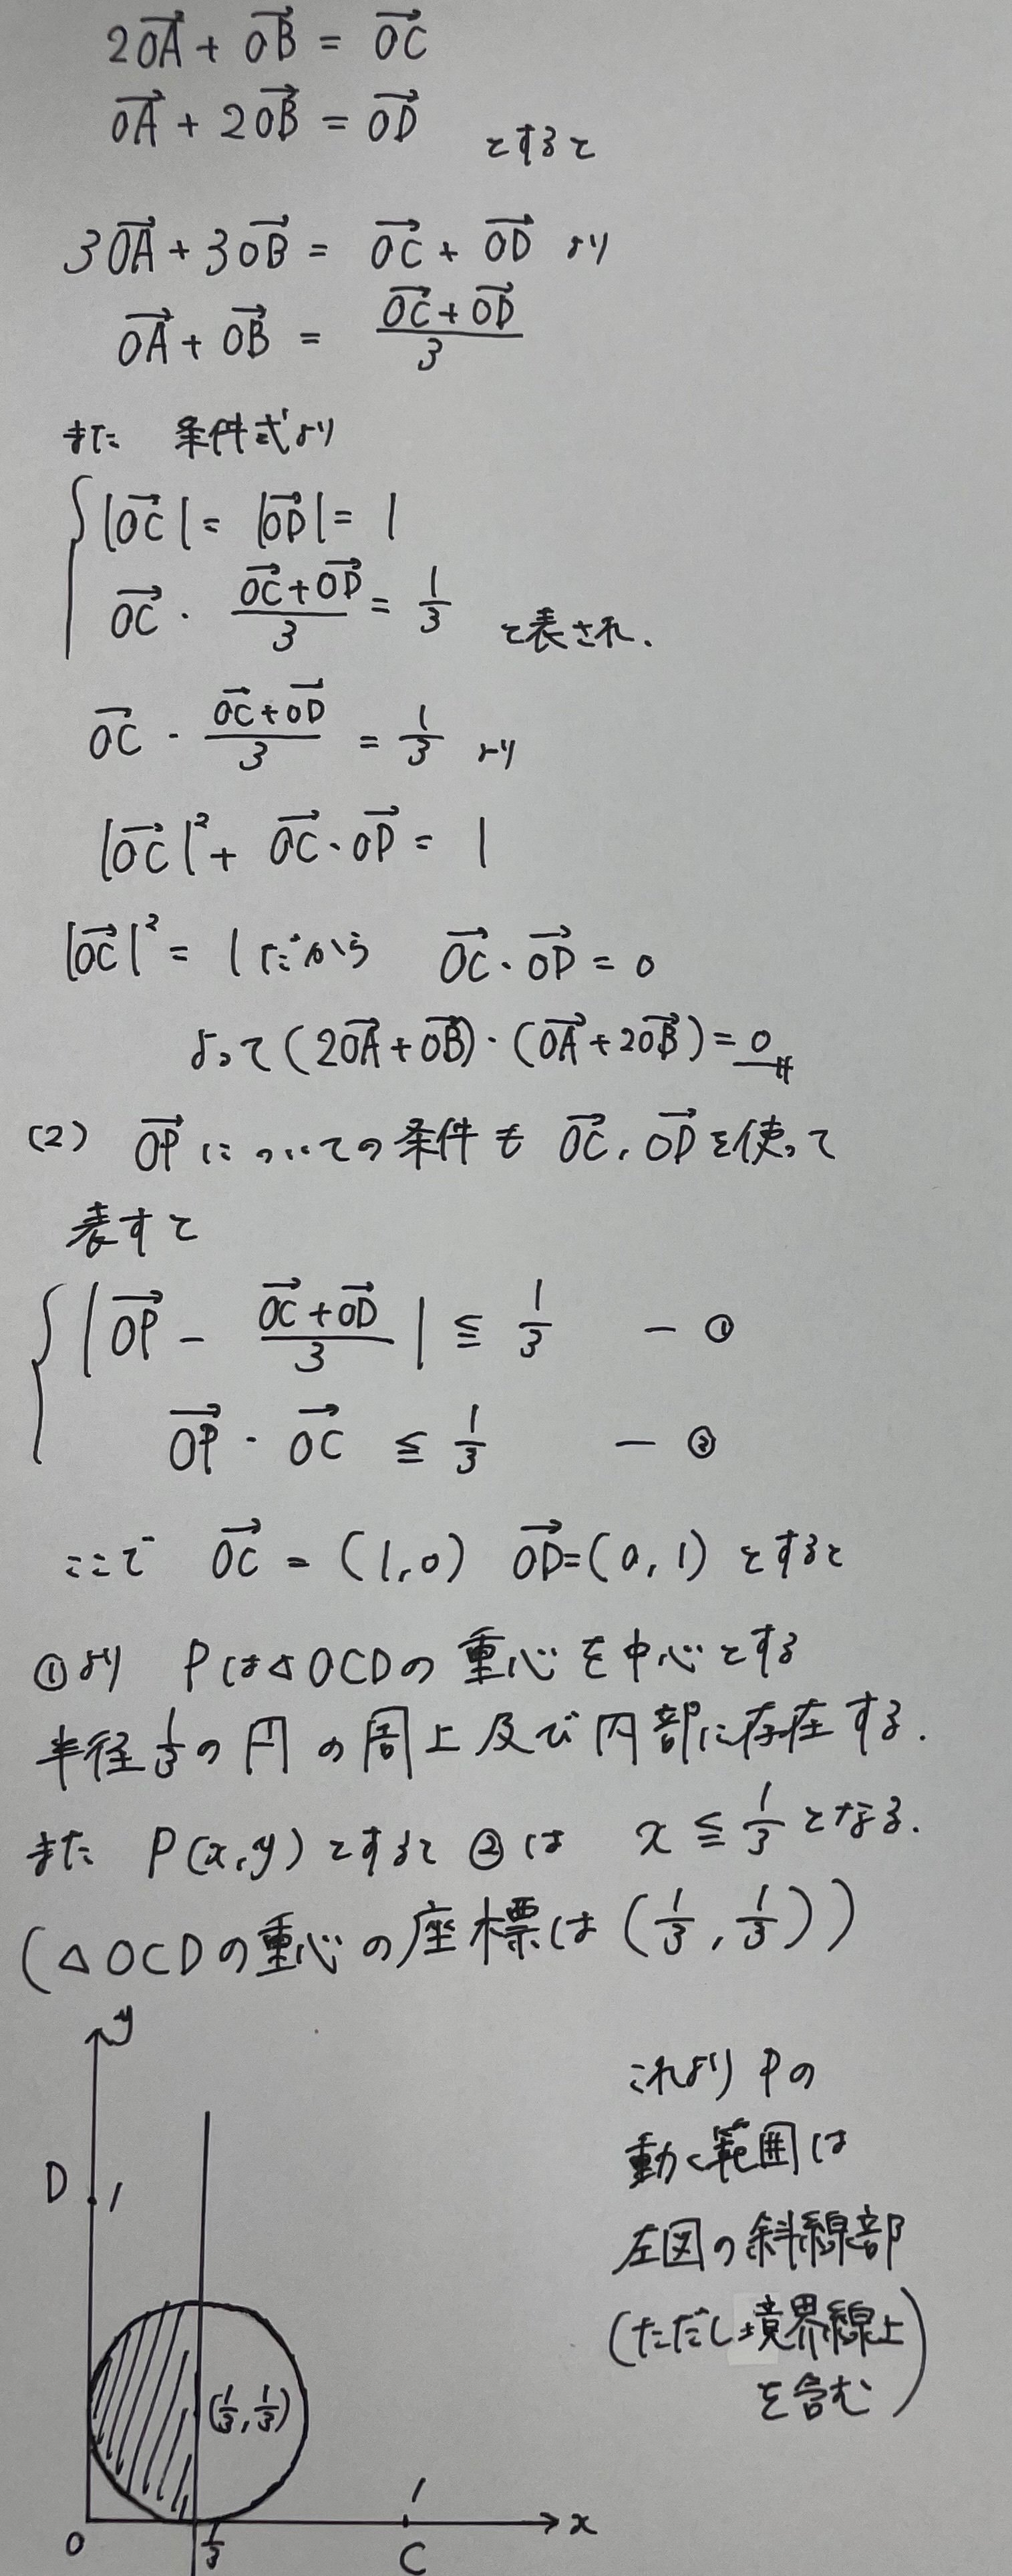 2OA→ + OB→ = OC→
OA→ + 2OB→ = OD→ とすると
3OA→ + 3OB→ = OC→ + OD→ より
OA→ + OB→ = (OC→ + OD→)/3
また 条件式より
{ |OC→| = |OD→| = 1
OC→・(OC→ + OD→)/3 = 1/3 と表され、
OC→・(OC→ + OD→)/3 = 1/3 より
|OC→|² + OC→・OD→ = 1
|OC→|² = 1 だから OC→・OD→ = 0
よって (2OA→ + OB→)・(OA→ + 2OB→) = 0
(2) OP→ についての条件も OC→, OD→ を使って
表すと
{ |OP→ - (OC→ + OD→)/3| ≦ 1/3 ― ①
OP→・OC→ ≦ 1/3 ― ②
ここで OC→ = (1,0) OD→ = (0,1) とすると
①より Pは△OCDの重心を中心とする
半径1/3の円の周上及び内部に存在する.
また P(x,y)とすると ②は x ≦ 1/3 となる.
(△OCDの重心の座標は (1/3, 1/3))
y
これより Pの
動く範囲は
D 1
左図の斜線部
(ただし境界線上
を含む)
(1/3, 1/3)
1
O 1/3 C x